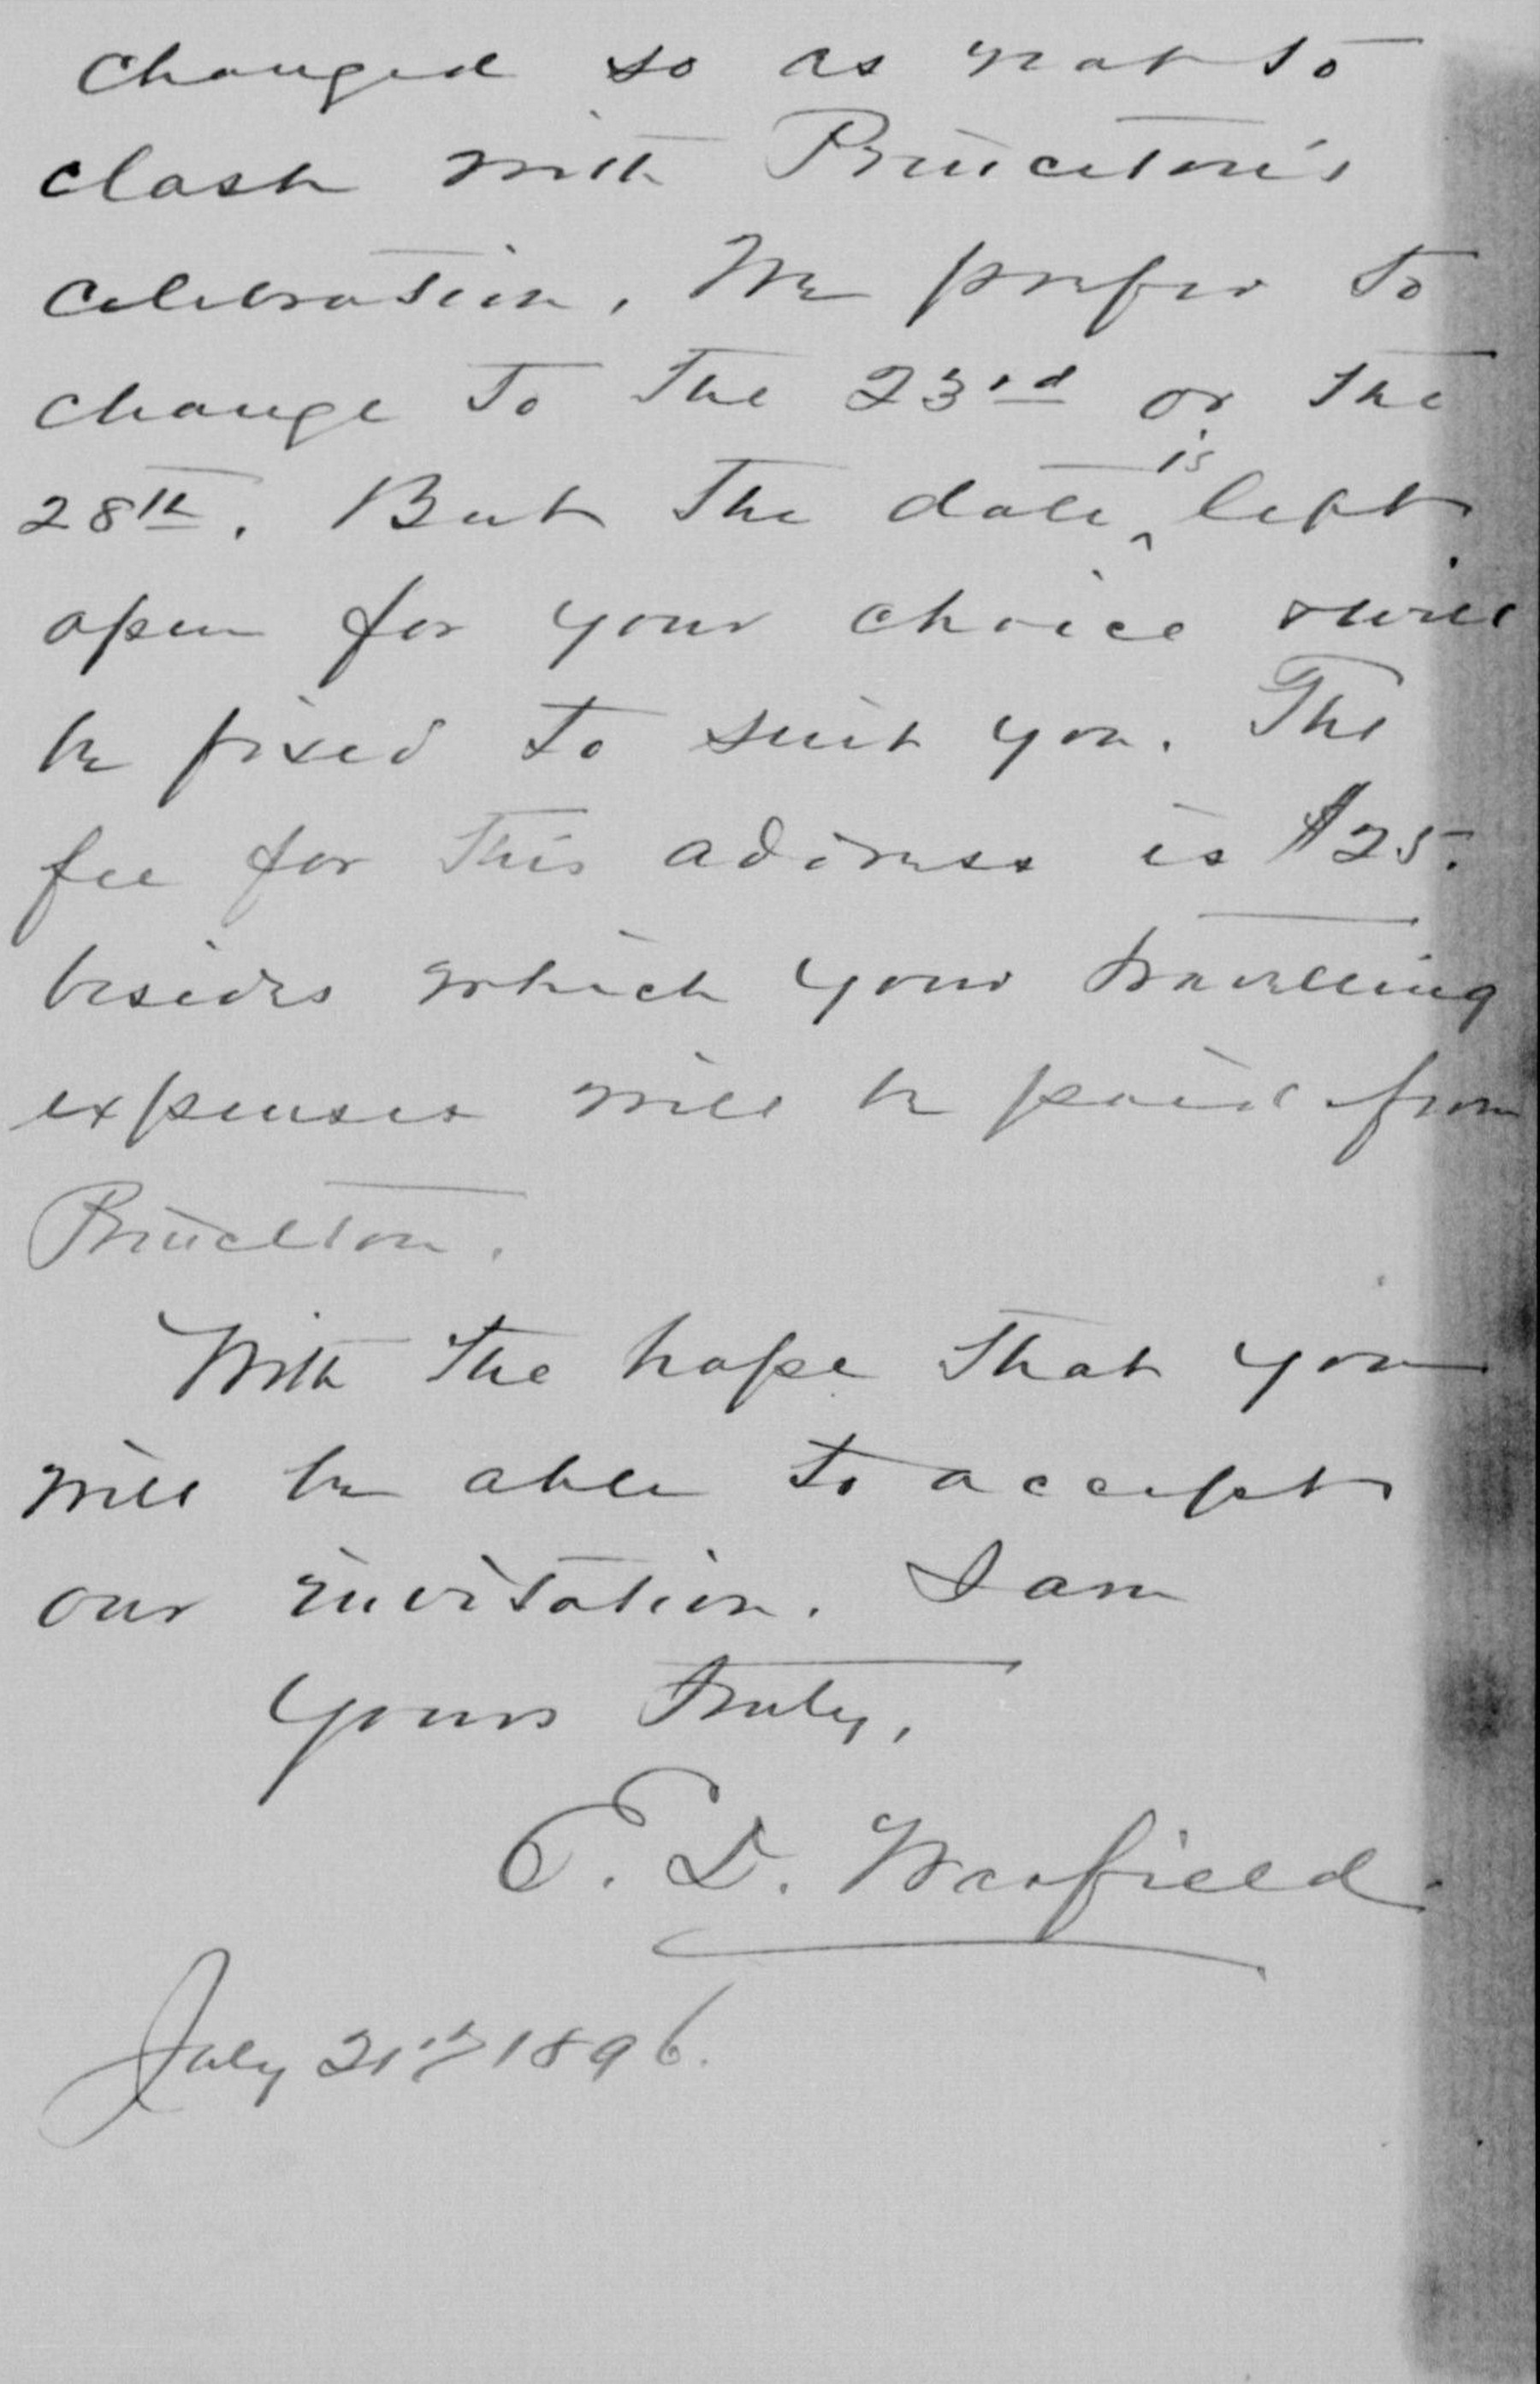 changed so as not to
clash with Princeton's
celebration. We prefer to
change to the 23rd or the
28th. But the date ^is left
open for your choice & will
be fixed to suit you. The
fee for this address is $25.
besides which your travelling
expenses will be paid from
Princeton.
With the hope that you
will be able to accept
our invitation. I am
Yours truly,
E. D. Warfield.
July 21st 1896.